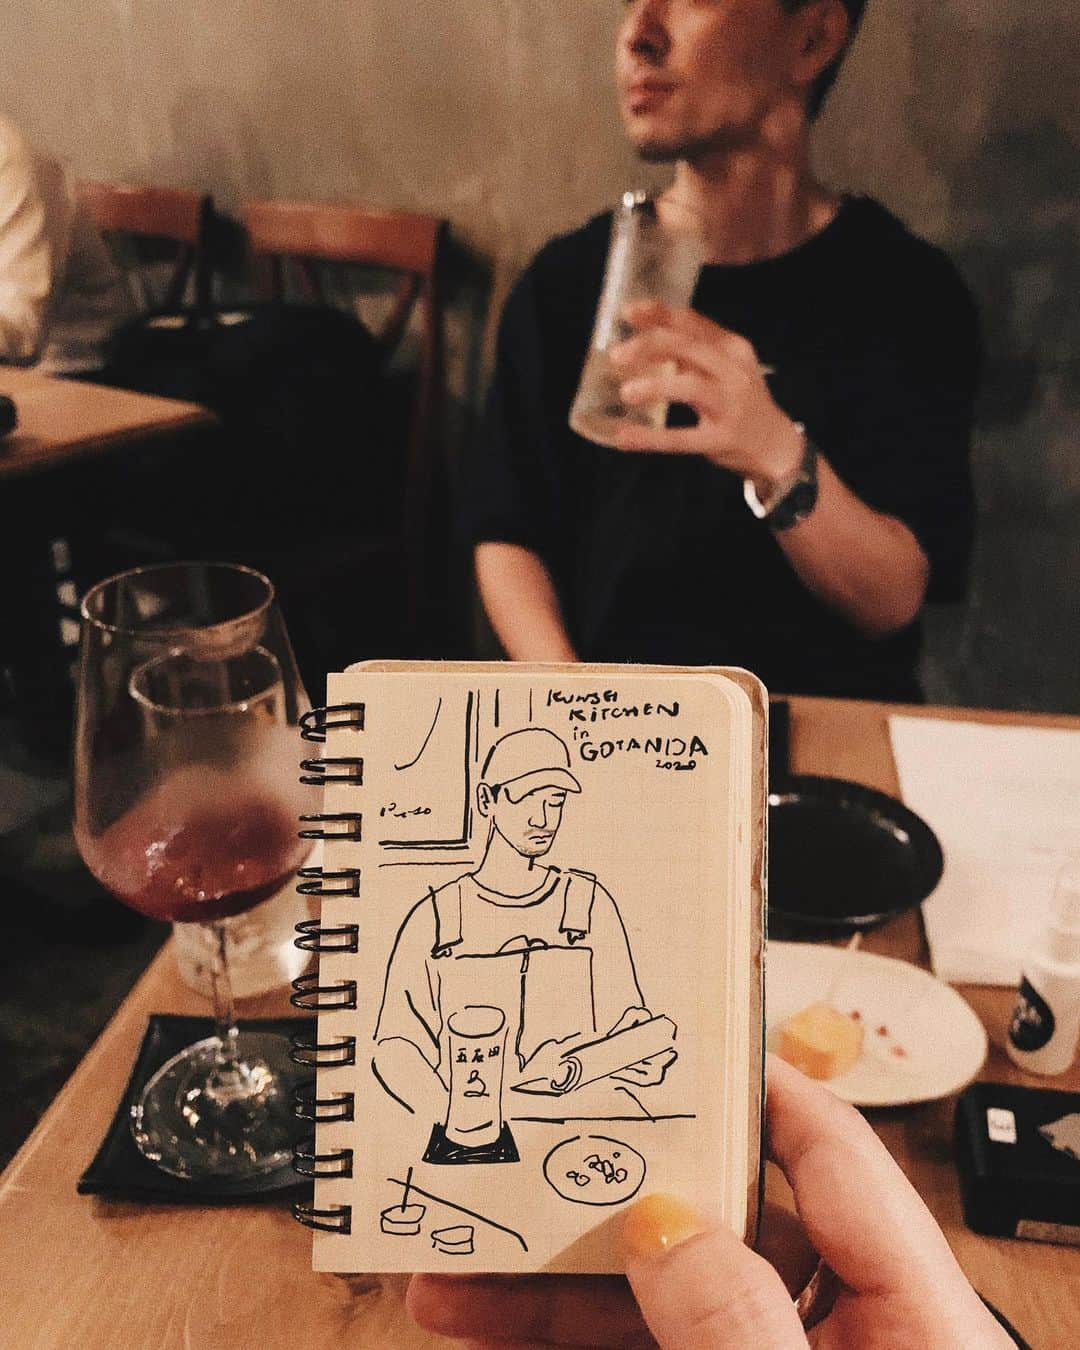 KUNSEI
KITCHEN
in
GOTANDA
2020
五反田